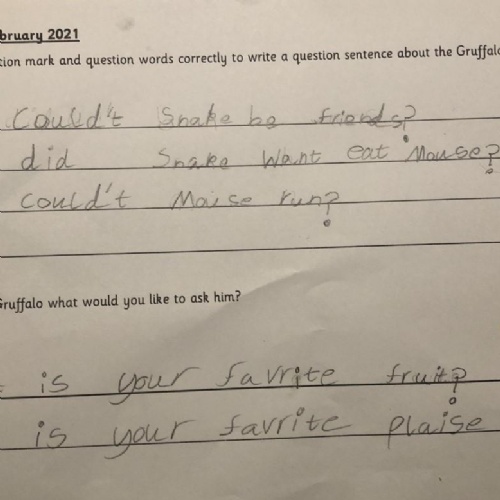 bruary 2021
tion mark and question words correctly to write a question sentence about the Gruffalo
Could't Snake be friends?
did Snake Want eat Mouse?
Could't Maise run?
Gruffalo what would you like to ask him?
is your favrite fruit?
is your favrite plaise